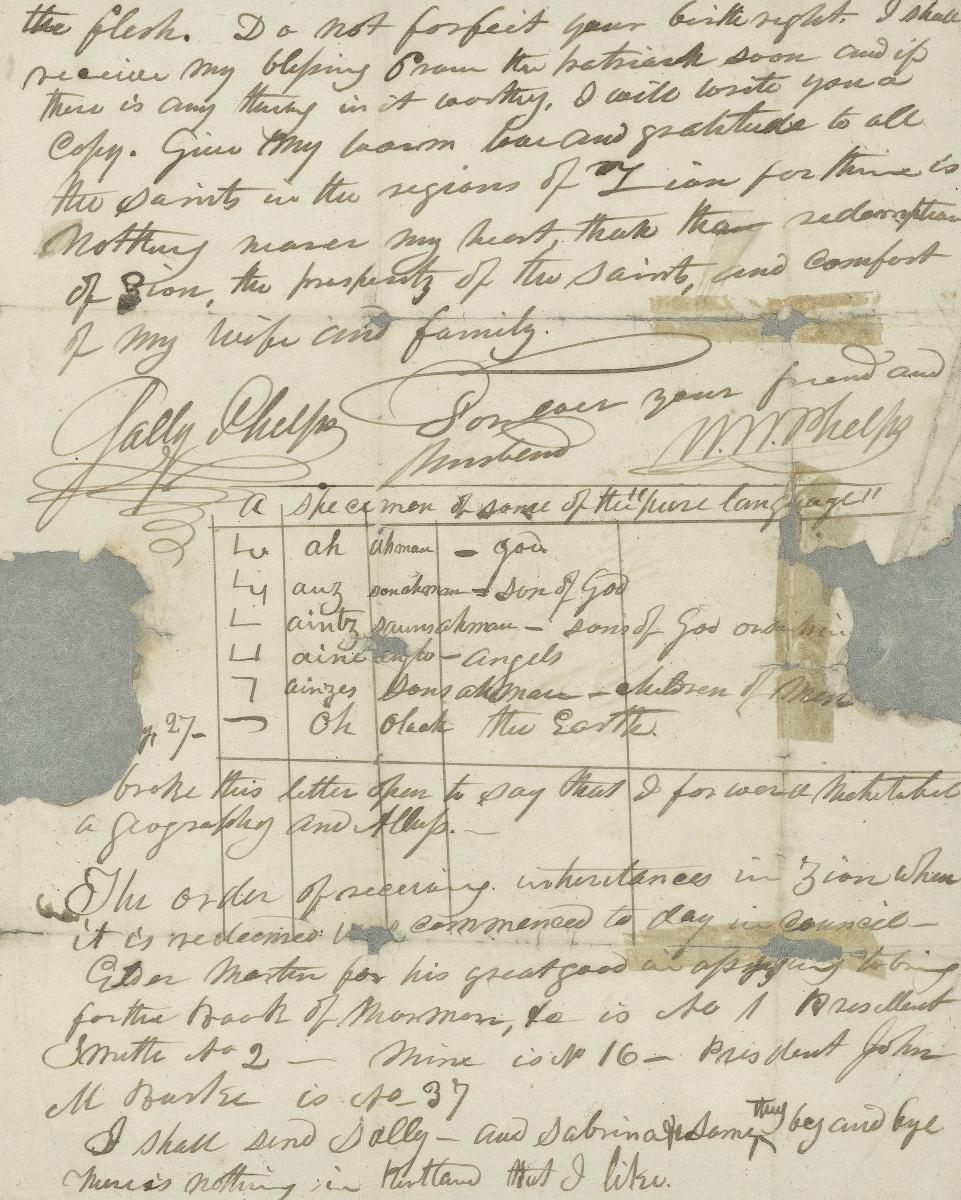 the flesh. Do not forfeit your birth right. I shall
receive my blessing from the patriach soon and if
there is any thing in it worthy, I will write you a
Copy. Give my warm love and gratitude to all
the saints in the regions of Zion for there is
Nothing nearer my heart, than the redemption
of Zion, the prosperity of the saints, and comfort
of my wife and family.
Sally Phelps Forever your friend and
husband W. W. Phelps
A specimen of some of the "pure language"
ah ahman — god
auz sonahman — son of God
aintz saunsahman — sons of God or
aine — angels
ainzes sonsahman — children of men
27— oh olaah the Earth.
broke this letter open to say that I forward Mehitabel
a geography and Atlass.—
The order of receiving inheritances in Zion when
it is redeemed commenced to day in council—
Elder Martin for his great good in assisting to bring
forth the Book of Mormon, &c is No 1 President
Smith No 2 — Mine is No 16 — President John
M Burke is No 37
I shall send Sally — and Sabrina some thing bey and bye
There is nothing in Kirtland that I like.